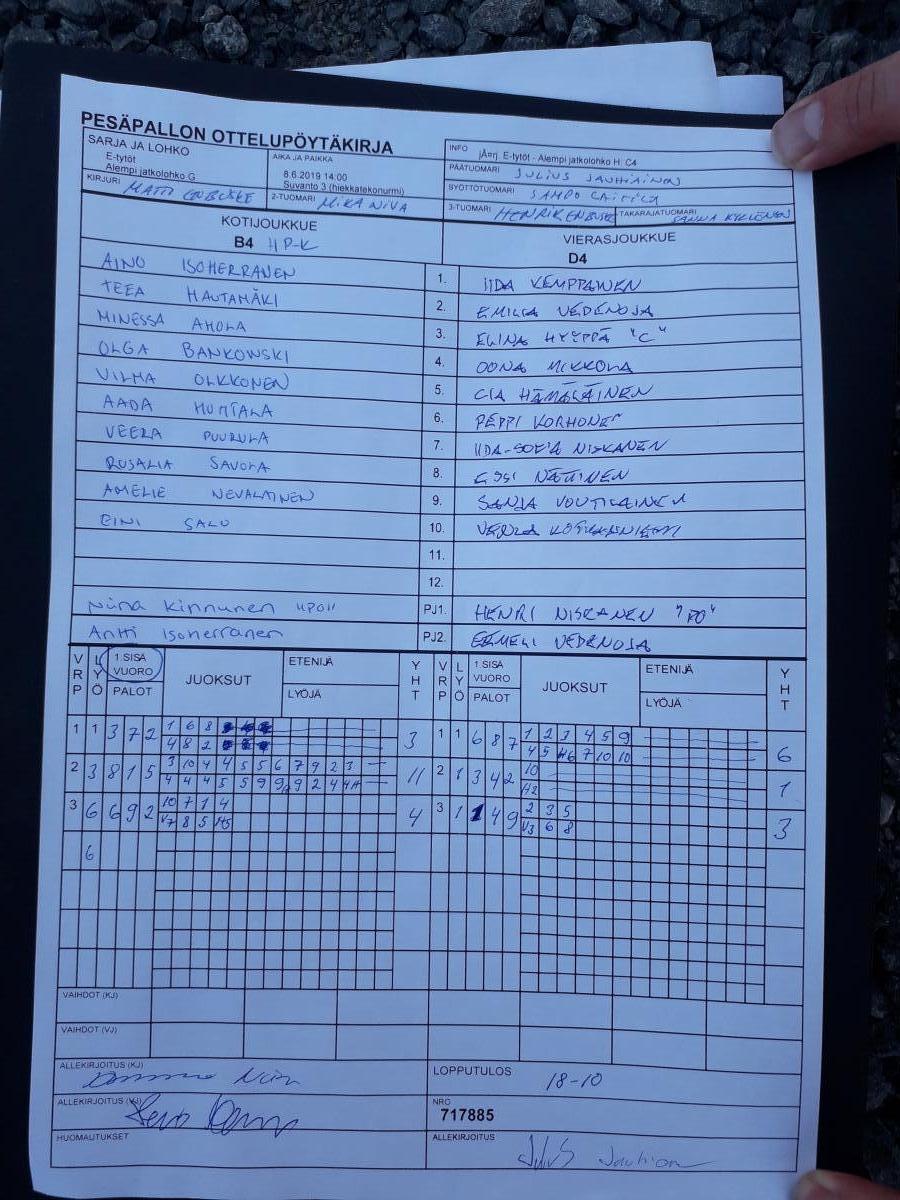 PESÄPALLON OTTELUPÖYTÄKIRJA
SARJA JA LOHKO
E-tytöt
Alempi jatkolohko G
AIKA JA PAIKKA
8.6.2019 14:00
Suvanto 3 (hiekkatekonurmi)
INFO jÄ¤rj. E-tytöt - Alempi jatkolohko H: C4
PÄÄTUOMARI JULIUS JAUHIAINEN
SYÖTTÖTUOMARI SAMPO LAITILA
KIRJURI MATTI ENBUSKE
2-TUOMARI MIKA NIVA
3-TUOMARI HENRIK ENBUSKE
TAKARAJATUOMARI SANNA KYLLÖNEN
KOTIJOUKKUE
B4 HP-K
VIERASJOUKKUE
D4
AINO ISOHERRANEN 1. IIDA KEMPPAINEN
TEEA HAUTAMÄKI 2. EMILIA VEDENOJA
MINESSA AHOLA 3. ELINA HYYPPÄ "C"
OLGA BANKOWSKI 4. OONA MIKKOLA
VILMA OLKKONEN 5. CIA HÄMÄLÄINEN
AADA HUHTALA 6. PEPPI KORHONEN
VEERA PUURULA 7. IIDA-SOFIA NISKANEN
ROSALIA SAVOLA 8. ESSI NÄTTINEN
AMELIE NEVALAINEN 9. SANJA VOUTILAINEN
EINI SALO 10. VENLA
11.
12.
Niina Kinnunen "PO" PJ1. HENRI NISKANEN "PO"
Antti Isoherranen PJ2. EEMELI VEDENOJA
VRP LYÖ 1.SISÄ VUORO PALOT JUOKSUT ETENIJÄ LYÖJÄ YHT VRP LYÖ 1.SISÄ VUORO PALOT JUOKSUT ETENIJÄ LYÖJÄ YHT
1 1 3 7 2 1 6 8 3 1 1 6 8 7 1 2 3 4 5 9 6
4 8 2 4 5 H6 7 10 10
2 3 8 1 5 3 10 4 4 5 5 6 7 9 2 3 11 2 1 3 4 2 10 1
4 4 4 5 5 9 9 9 2 4 4 H2
3 6 6 9 2 10 7 1 4 4 3 1 1 4 9 2 3 5 3
V7 8 5 H5 V3 6 8
6
VAIHDOT (KJ)
VAIHDOT (VJ)
ALLEKIRJOITUS (KJ)
LOPPUTULOS 18-10
ALLEKIRJOITUS (VJ)
NRO
717885
HUOMAUTUKSET
ALLEKIRJOITUS Julius Jauhiainen